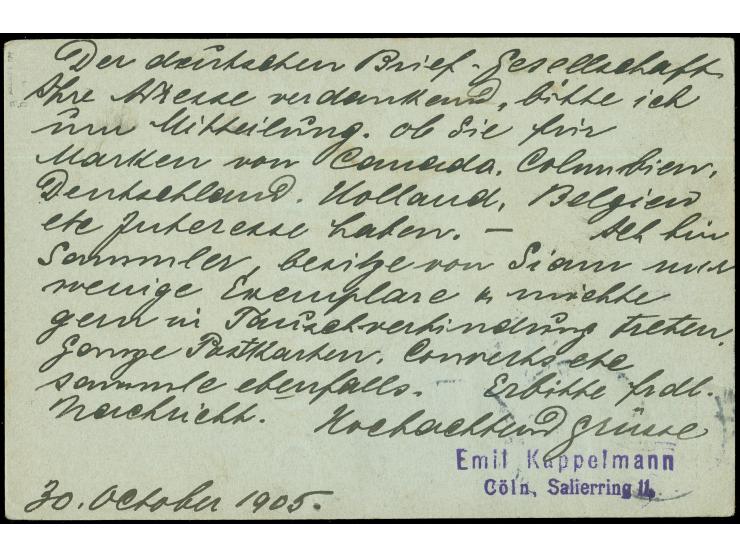 Der deutschen Brief-Gesellschaft
Ihre Adresse verdankend, bitte ich
um Mitteilung, ob Sie für
Marken von Canada, Columbien,
Deutschland, Holland, Belgien
etc Interesse haben. — Ich bin
Sammler, besitze von Siam nur
wenige Exemplare & möchte
gern in Tauschverbindung treten.
Ganze Postkarten, Converts etc
sammle ebenfalls. Erbitte frdl.
Nachricht. Hochachtend Grüsse
Emil Kappelmann
Cöln, Salierring 11.
30. October 1905.